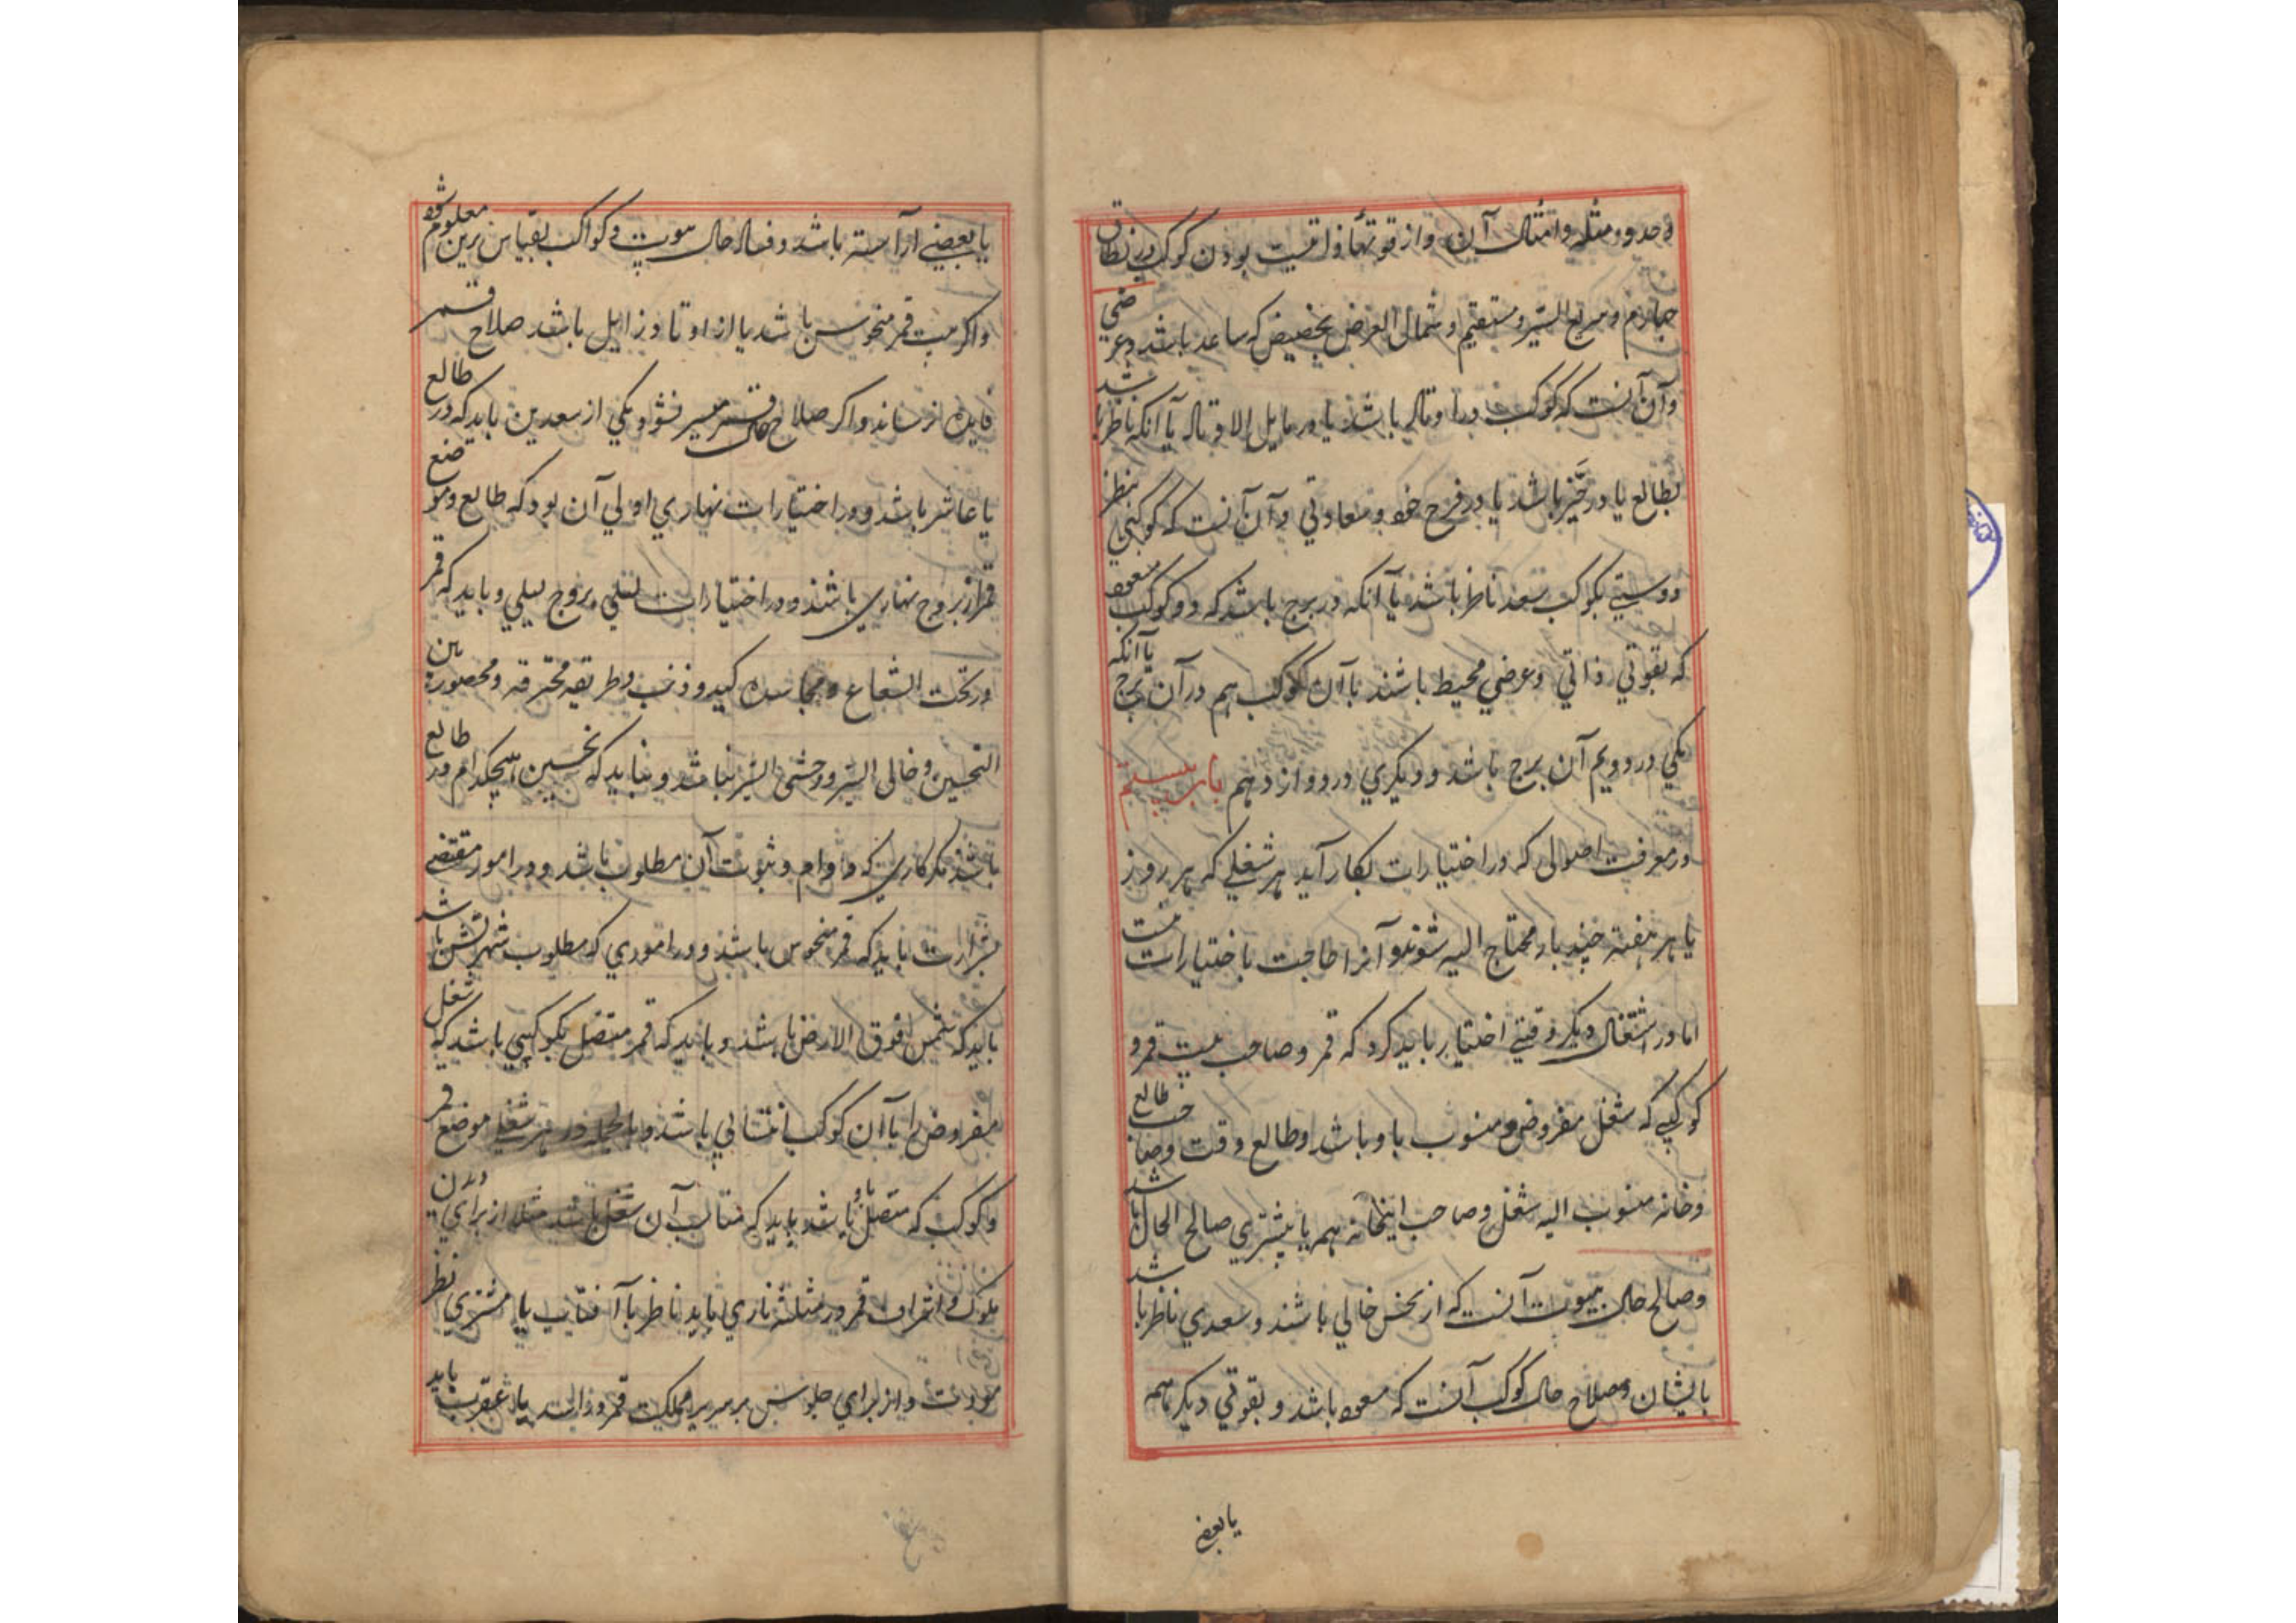 و حد و مثله و امثال آن و از قوتها واقیست بودن کوکب در نطاق
چهارم و سریع السیر و مستقیم و شمال العرض بخصیص که صاعد باشد و عرضی
و آن آنست که کوکب در اوتاد باشد یا در مایل الاوتاد یا آنکه ناظر باشد
بطالع یا در حیز باشد یا در فرح خود و سعادتی و آن آنست که کوکبی بنظر
دوستی بکوکب سعد ناظر باشد یا آنکه در برج باشد که دو کوکب مسعود
که بقوتی ذاتی و عرضی محیط باشند با آن کوکب هم در آن برج یا آنکه
یکی در دویم آن برج باشد و دیکری در دوازدهم باب بیستم
در معرفت اصولی که در اختیارات بکار آید هر شغلی که هر روز
یا هر هفته چند بار محتاج الیه شوند و آنرا حاجت باختیارات نیست
اما در اشتغال دیکر وقتی اختیار باید کرد که قمر و صاحب بیت قمر و
کوکبی که شغل مفروض منسوب باو باشد و طالع وقت و صاحب طالع
و خانه منسوب الیه شغل و صاحب اینخانه هم یا بیشتری صالح الحال باشد
و صالح حال بیوت آنست که از نحس خالی باشند و سعدی ناظر باشد
بایشان و صلاح حال کوکب آنست که مسعود باشد و بقوتی دیکر هم
یا بعضی
یا بعضی آراسته باشد و فساد حال بیوت و کواکب بقیاس برین معلوم شود
و اکر بیت قمر منحوس باشد یا از اوتاد زایل باشد صلاح قمر
فایده نرساند و اکر صلاح حال قمر میسر نشود یکی از سعدین باید که در طالع
یا عاشر باشد و در اختیارات نهاری اولی آن بود که طالع و موضع
قمر از بروج نهاری باشند و در اختیارات لیلی بروج لیلی و باید که قمر
در تحت الشعاع و مجاسده کید و ذنب و طریقه محترقه و محصور بین
النحسین و خالی السیر و وحشی السیر نباشد و نباید که نحسین هیچکدام در طالع
باشند مکر کاری که دوام و ثبوت آن مطلوب باشد و در امور مقتضی
شرارت باید که قمر منحوس باشد و در اموری که مطلوب شهرتش باشد
باید که شمس فوق الارض باشد و باید که قمر متصل بکوکبی باشد که شغل
مفروض را با آن کوکب انتسابی باشد و بالجمله در هر شغلی موضع قمر
و کوکب که متصل باو باشد باید که مناسب آن شغل باشد مثلا از برای دیدن
ملوک و اشراف قمر در مثلثه ناری باید ناظر با آفتاب یا مشتری نظر
مودت و از برای جلوس بر سریر مملکت قمر در اسد یا عقرب باید